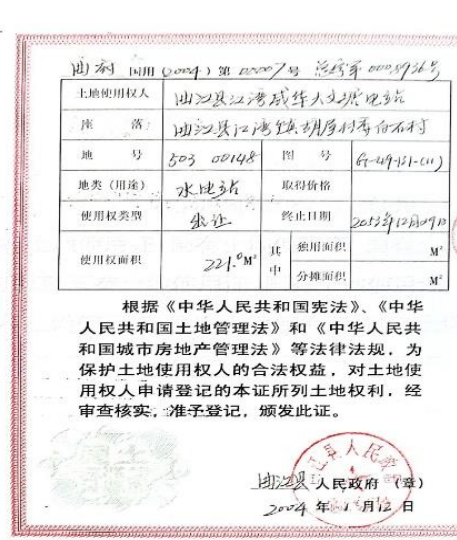 曲府 国用 (2004) 第 00007 号 总字第 0008936号
土地使用权人 曲江县江湾成华大文塘电站
座 落 曲江县江湾镇胡屋村委白石村
地 号 503 00148 图 号 G-49-131-(11)
地类(用途) 水电站 取得价格
使用权类型 出让 终止日期 2053年12月09日
使用权面积 221.0M² 其中 独用面积 M²
分摊面积 M²
根据《中华人民共和国宪法》、《中华
人民共和国土地管理法》和《中华人民共
和国城市房地产管理法》等法律法规,为
保护土地使用权人的合法权益,对土地使
用权人申请登记的本证所列土地权利,经
审查核实,准予登记,颁发此证。
曲江县 人民政府 (章)
2004 年 1 月 12 日